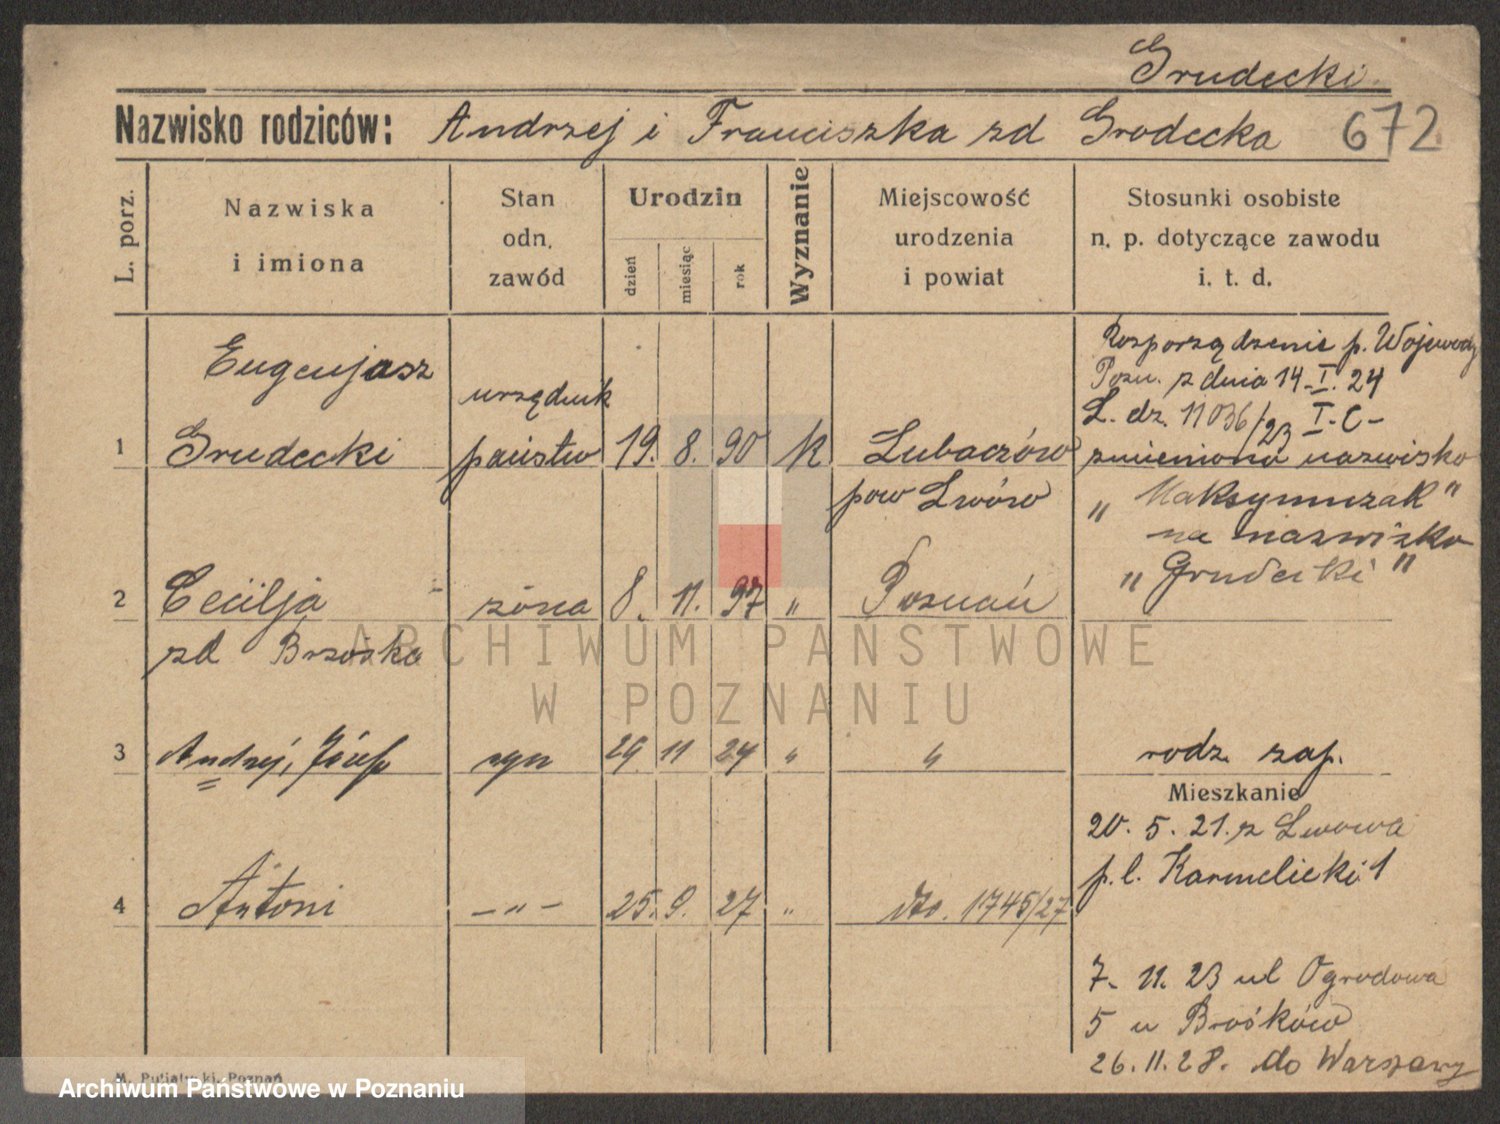 Grudecki
Nazwisko rodziców: Andrzej i Franciszka zd Grodecka 672
L. porz.
Nazwiska i imiona
Stan odn. zawód
Urodzin
dzień miesiąc rok
Wyznanie
Miejscowość urodzenia i powiat
Stosunki osobiste n. p. dotyczące zawodu i. t. d.
1 Eugenjusz
Grudecki
urzędnik
państw
19. 8. 90 k
Lubaczów
pow Lwów
Rozporządzenie p. Wojewody
Pozn. z dnia 14-I. 24
L. dz. 11036/23 I-C-
zmieniono nazwisko
„ Maksymczak "
na nazwisko
„ Grudecki "
2 Cecilja
zd Brzóska
żona 8. 11. 97 „ Poznań
3 Andrzej, Józef syn 29 11 24 „ „
rodz. zap.
Mieszkanie
20. 5. 21. z Lwowa
p.l. Karmelicki 1
4 Antoni – „ – 25. 9. 27 „ 1745/27
7. 11. 23 ul Ogrodowa
5 u Brośków
26. 11. 28. do Warszawy
ARCHIWUM PAŃSTWOWE
W POZNANIU
M. Putiatycki, Poznań
Archiwum Państwowe w Poznaniu